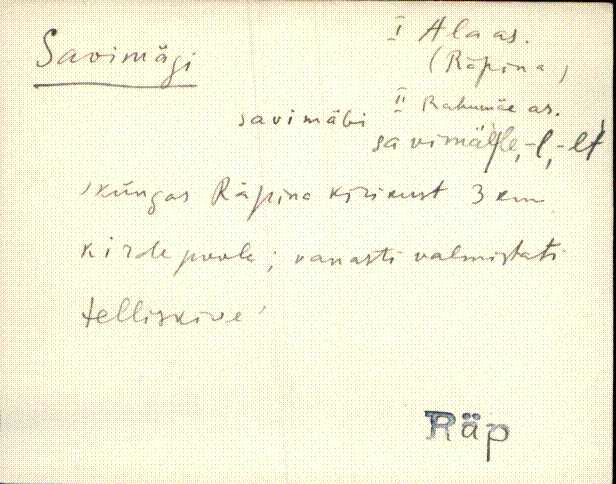 Savimägi
I Ala as.
(Räpina)
II Rahumäe as.
savimäGi
savimäele, -l, -lt
'küngas Räpina kirikust 3 km
kirde poole; vanasti valmistati
telliskive'
Räp